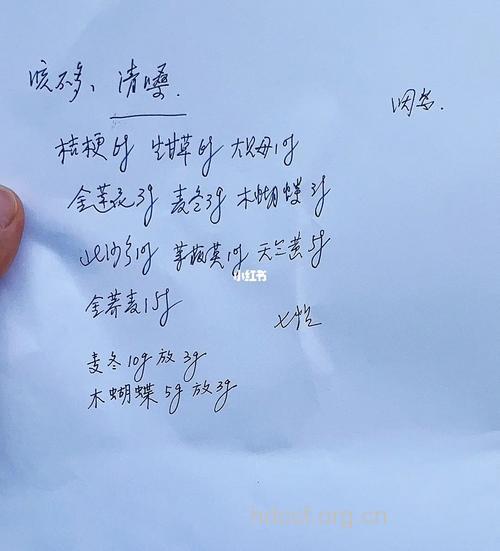 咳不多、清嗓.
因省.
桔梗6g 生甘草6g 大贝母10g
金莲花3g 麦冬3g 木蝴蝶3g
北沙参10g 荸荠英10g 天竺黄5g
小红书
金荞麦15g
七付
麦冬10g放3g
木蝴蝶5g放3g
hdcsf.org.cn